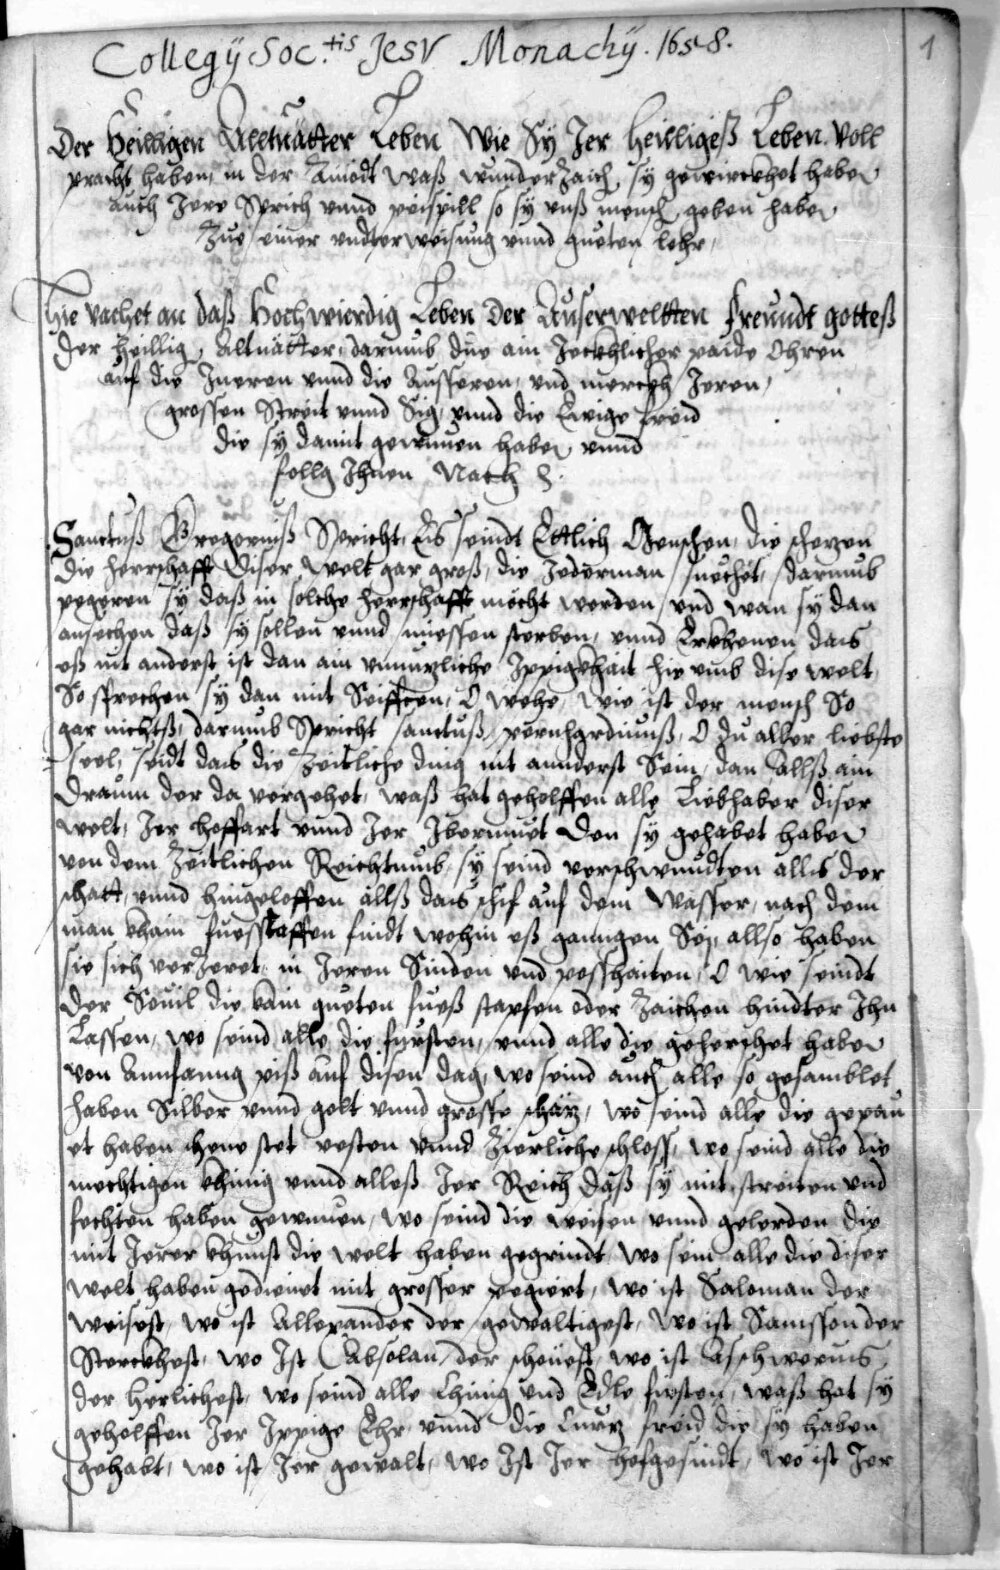 Collegÿ Soc.tis Jesv Monachÿ. 1658.
1
Der Heilligen Alltuätter Leben Wie Sÿ Jer Heilligeß Leben. Voll
pracht haben, in der Ainödt waß wunderzaich sÿ gewirckhet haben
auch Jere Sprich vnnd peispill so sÿ vnß mensch geben haben
Zue einer vndterweisung vnnd gueten lehr,
Hie vachet an daß Hochwierdig Leben Der Auserweltten Freundt gotteß
Der heillig, Altuätter, darumb due ain Jeckhlicher paide Ohren
auf die Jneren vnnd die Ausseren, vnd merckh Jeren,
grossen Streit vnnd Sig, vnnd die Ewige freid
die sÿ damit gewunen haben vnnd
follg Jhnen Nach
Sanctuß Gregoriuß Spricht, Es seindt Ettlich Menschen, die schezen
Die herrschafft Diser Welt gar groß, die Jederman suechet, darumb
pegeren sÿ daß in solche herrschafft möcht werden, vnd wan sÿ dan
ansechen daß sÿ sollen vnnd miessen sterben, vnnd Erkhenen das
eß nit anderst ist dan ain vnnuzliche Jppigkhait hie vmb dise welt
So sprechen sÿ dan mit Seifften, O wehe, wie ist der mensch So
gar nichtß, darumb Spricht sanctuß pernhardiuuß, O du aller liebste
seel, seidt das die Zeitliche ding nit annderst Sein, dan allß ain
Draum der da vergehet, waß hat geholffen alle Liebhaber diser
welt, Jer hoffart vnnd Jer Jbermuet Den sÿ gehabet haben
von dem Zeitlichen Reichtumb, sÿ seind verschwundten alls der
schatt, vnnd hingeloffen allß das schif auf dem Wasser, nach dem
man khain fuesstaffen findt wohin eß ganngen Seÿ, allso haben
sie sich verzeret, in Jeren Sinden vnd posshaiten, O wie seindt
Der Souil die kain gueten fueß stapfen oder Zaichen hindter Jhn
Lassen, wo seind alle die fursten, vnnd alle die geherschet haben
von Annfanng piß auf disen dag, wo seind auch alle so gesamblet
haben Silber vnnd golt vnnd grosse schäz, wo seind alle die gepau
et haben schene stet vesten vnnd Zierliche schloss, wo seind alle die
mechtigen khinig vnnd alleß Jer Reich daß sÿ mit streiten vnd
fechten haben gewunen, wo seind die weisen vnnd gelerden die
mit Jerer khunst die welt haben gegrindt wo sein alle die diser
welt haben gedienet mit grosser pegiert, wo ist Saloman der
weisest, wo ist Allexander der gewaltigest, Wo ist Samsson der
Sterckhest, wo Jst Absolan der schenest, wo ist Aschwerus
der herlichest, wo seind alle Khinig vnd Edle firsten, waß hat sÿ
geholffen Jer Jppige Ehr vnnd die Curz freid die sÿ haben
gehabt, wo ist Jer gewalt, wo Jst Jer hofgesindt, wo ist Jer